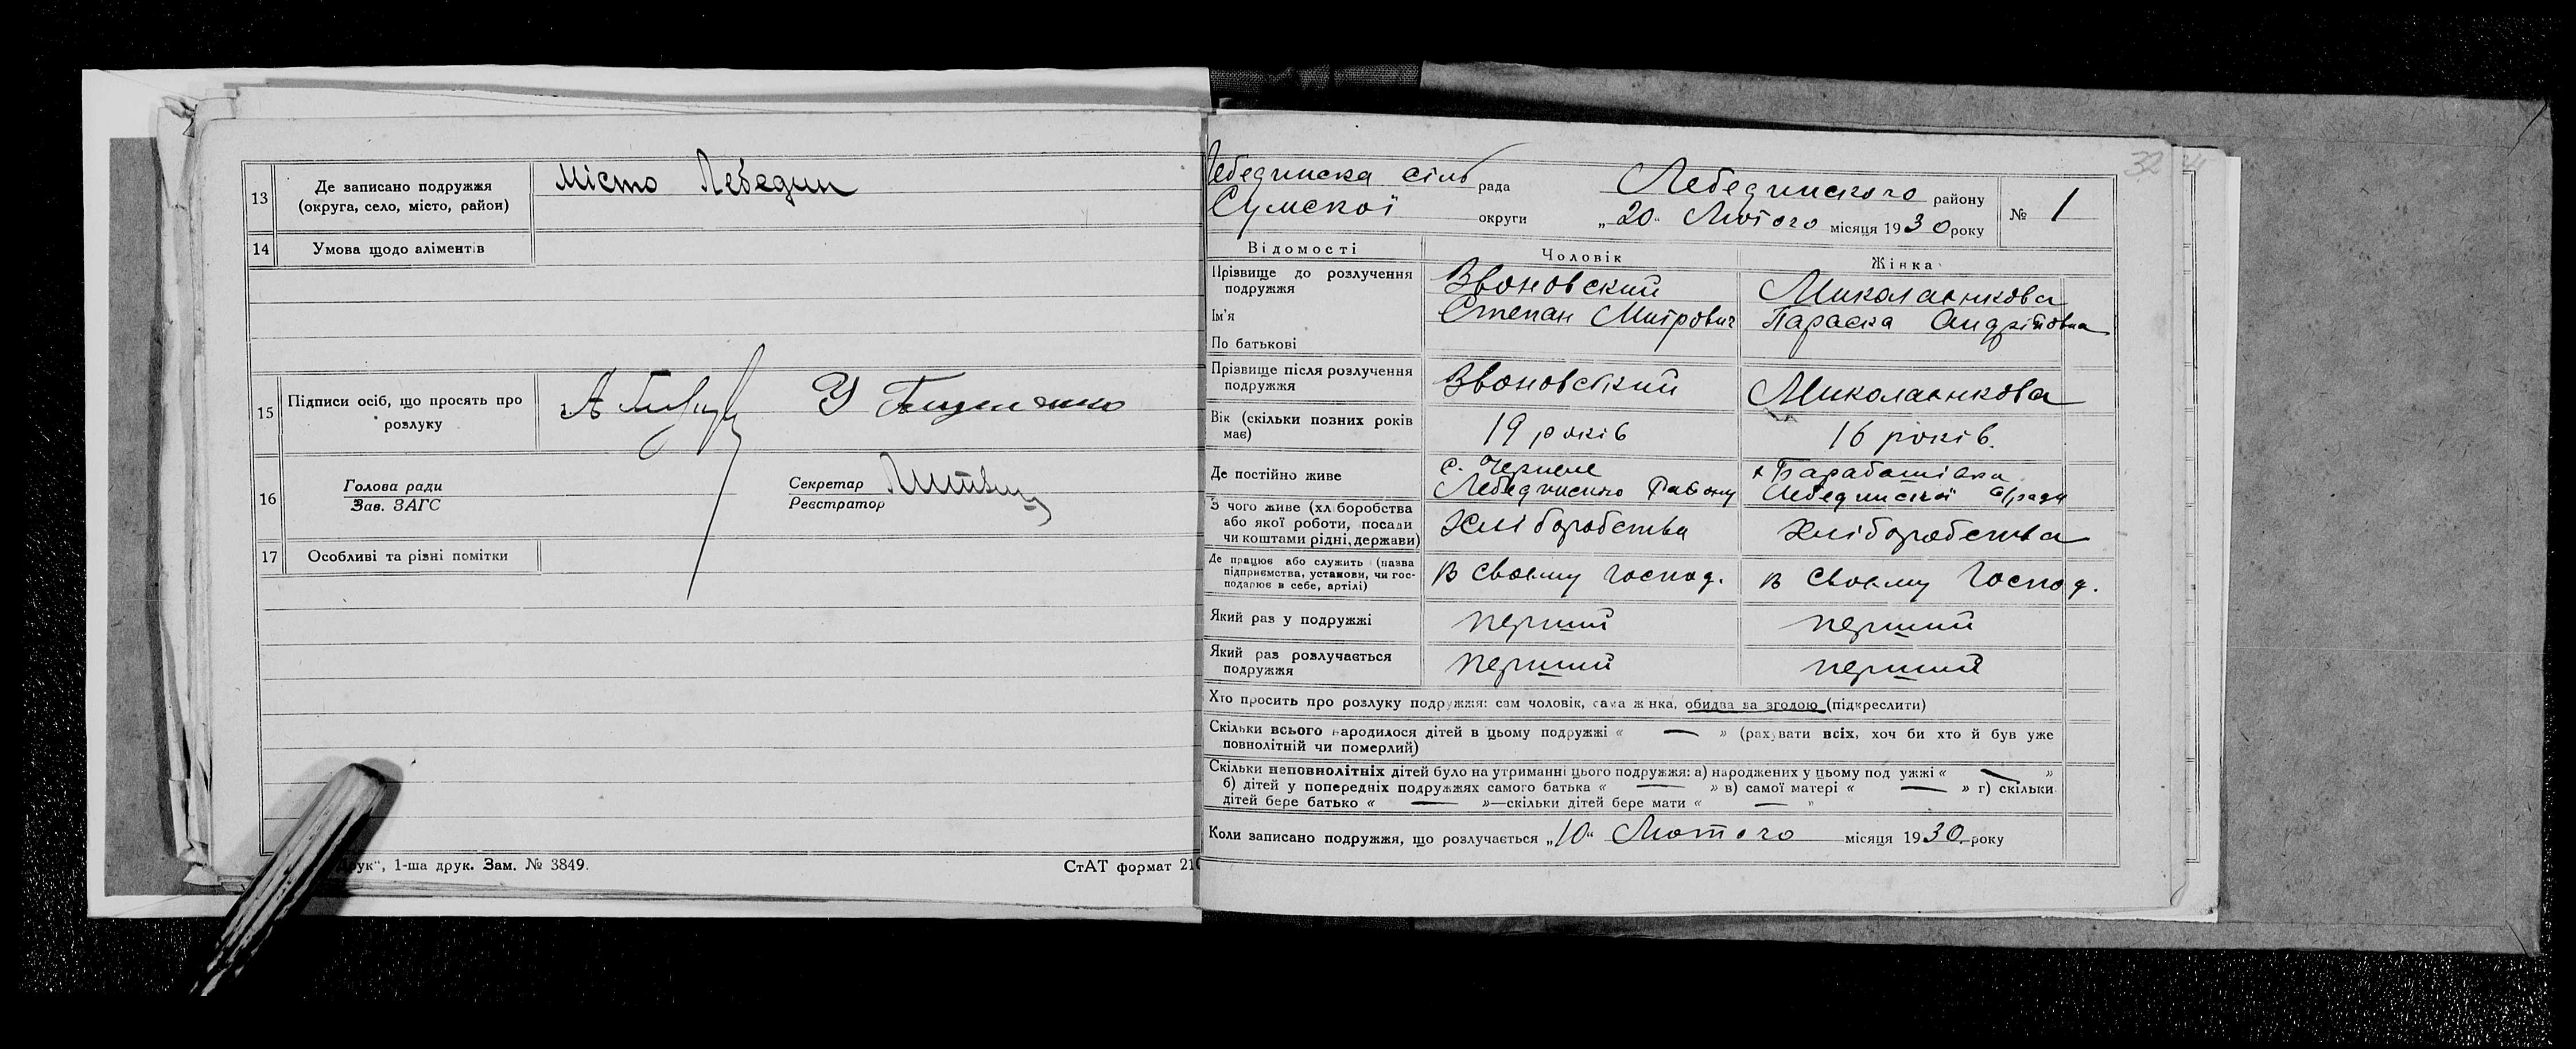 13
Де записано подружжя
(округа, село, місто, район)
Місто Лебедин
14
Умова щодо аліментів
15
Підписи осіб, що просять про
розлуку
16
Голова ради
Зав. ЗАГС
Секретар
Реєстратор
Литвин
17
Особливі та різні помітки
друк“, 1-ша друк. Зам. № 3849.
СтАТ формат 210
32
Лебединска сіль рада
Лебединского району
Сумскої округи
„20“ Лютого місяця 1930 року
№ 1
Відомості
Чоловік
Жінка
Прізвище до розлучення
подружжя
Звоновский
Миколаєнкова
Ім'я
Степан Митрович
Параска Андрііовна
По батькові
Прізвище після розлучення
подружжя
Звоновський
Миколаєнкова
Вік (скільки повних років
має)
19 років
16 років.
Де постійно живе
с. Червлене
Лебединского Району
х Барабашівка
Лебединскої с/ради
З чого живе (хліборобства
або якої роботи, посади
чи коштами рідні, держави)
Хліборобства
Хліборобства
Де працює або служить (назва
підприємства, установи, чи гос-
подарює в себе, артілі)
в своєму господ.
в своєму господ.
Який раз у подружжі
перший
перший
Який раз розлучається
подружжя
перший
перший
Хто просить про розлуку подружжя: сам чоловік, сама жінка, обидва за згодою (підкреслити)
Скільки всього народилося дітей в цьому подружжі « — » (рахувати всіх, хоч би хто й був уже
повнолітній чи померлий)
Скільки неповнолітніх дітей було на утриманні цього подружжя: а) народжених у цьому подружжі « — »
б) дітей у попередніх подружжях самого батька « — » в) самої матері « — » г) скільки
дітей бере батько « — »—скільки дітей бере мати « — »
Коли записано подружжя, що розлучається „10“ Лютого місяця 1930 року